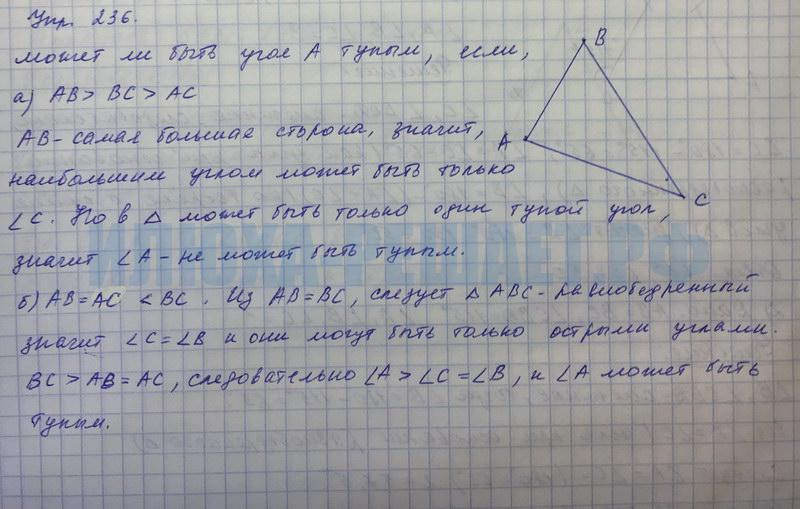 Упр. 236.
может ли быть угол А тупым, если,
а) AB > BC > AC
AB - самая большая сторона, значит,
наибольшим углом может быть только
∠C. Но в △ может быть только один тупой угол,
значит ∠A - не может быть тупым.
б) AB = AC < BC. Из AB = BC, следует △ABC - равнобедренный
значит ∠C = ∠B и они могут быть только острыми углами.
BC > AB = AC, следовательно ∠A > ∠C = ∠B, и ∠A может быть
тупым.
B
A
C
ИЛЮХА-РЕШАЕТ.РФ